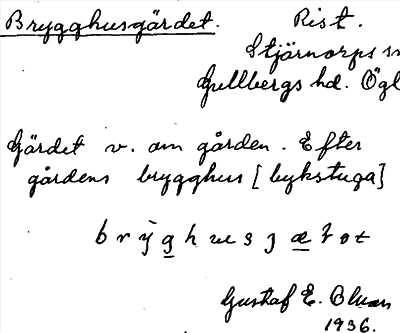 Brygghusgärdet. Rist.
Stjärnorps sn
Gullbergs hd. Ögl
Gärdet v. om gården. Efter
gårdens brygghus [bykstuga]
Gustaf E. Bluan
1936.